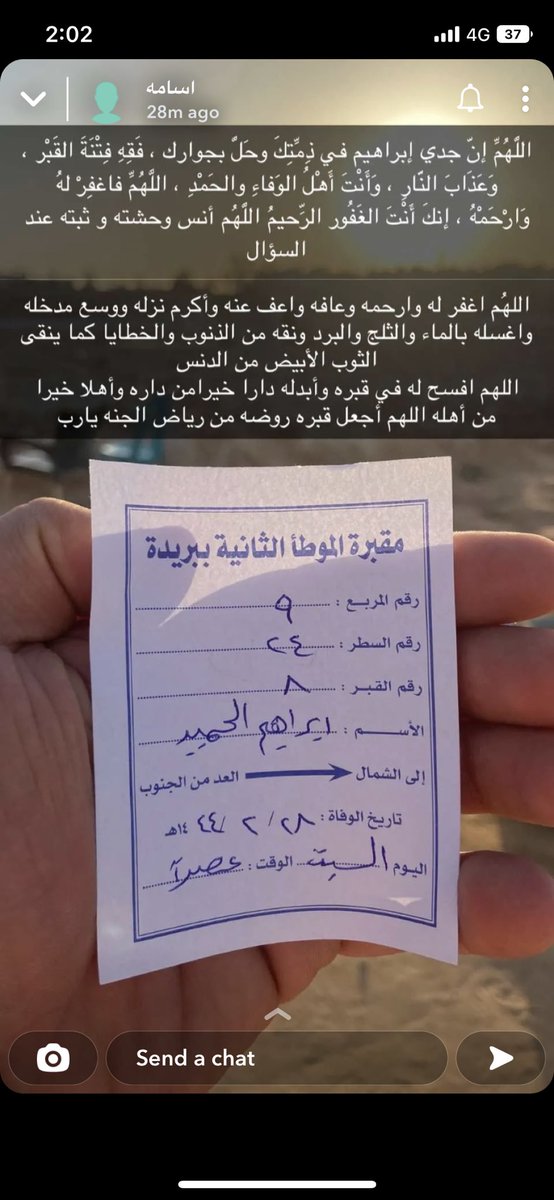 2:02
4G
37
اسامه
28m ago
اللَّهُمِّ إنّ جدي إبراهيم في ذِمِّتِكَ وحَلَّ بجوارك ، فَقِهِ فِتْنَةَ القَبْر ،
وَعَذَابَ النَّارِ ، وَأَنْتَ أَهْلُ الوَفاءِ والحَمْدِ ، اللَّهُمِّ فاغفِرْ لهُ
وَارْحَمْهُ ، إنكَ أَنْتَ الغَفُور الرَّحيمُ اللَّهُم أنس وحشته و ثبته عند
السؤال
اللهُم اغفر له وارحمه وعافه واعف عنه وأكرم نزله ووسع مدخله
واغسله بالماء والثلج والبرد ونقه من الذنوب والخطايا كما ينقى
الثوب الأبيض من الدنس
اللهم افسح له في قبره وأبدله دارا خيرامن داره وأهلا خيرا
من أهله اللهم أجعل قبره روضه من رياض الجنه يارب
مقبرة الموطأ الثانية ببريدة
رقم المربع : ٩
رقم السطر : ٢٤
رقم القبر : ٨
الأســـم : ابراهيم الحميد
إلى الشمال العد من الجنوب
تاريخ الوفاة : ٢٨ / ٢ / ٤٤ ١٤هـ
اليوم السبت الوقت : عصراً
Send a chat